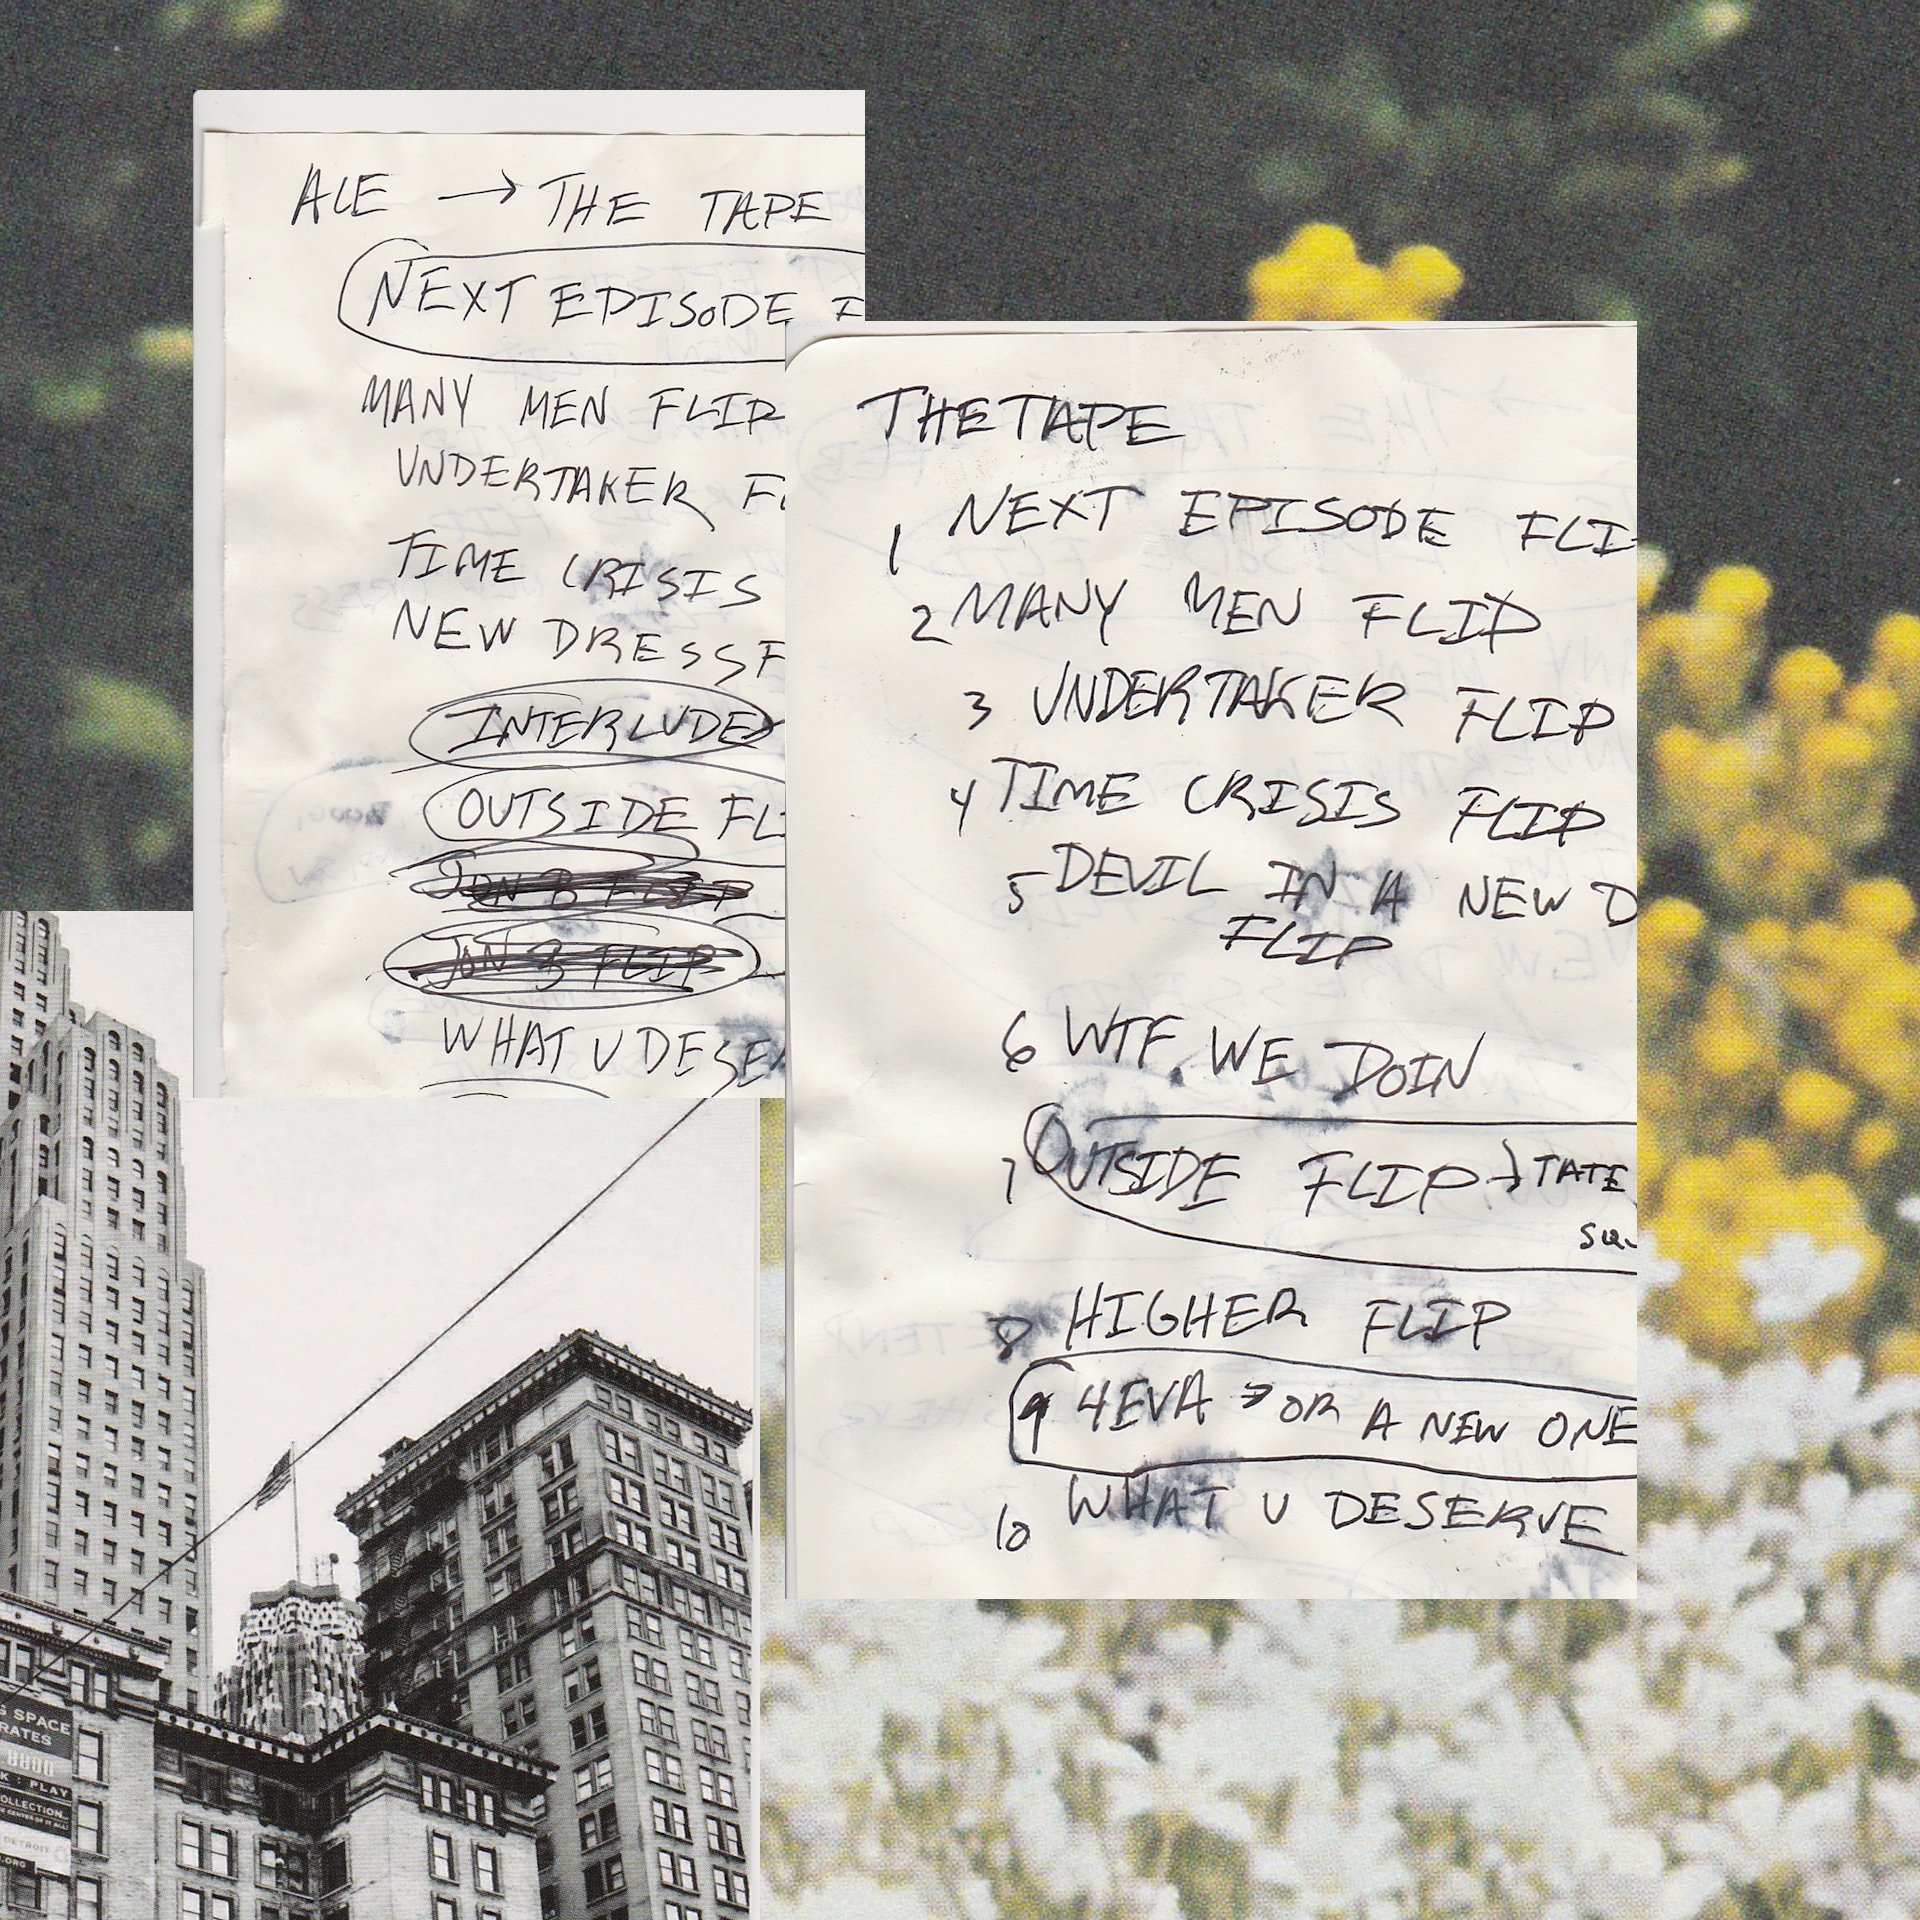 ALE → THE TAPE
NEXT EPISODE F
MANY MEN FLIP
UNDERTAKER FL
TIME CRISIS
NEW DRESS F
INTERLUDE
OUTSIDE FLI
JON B FLIP
JON B FLIP
WHAT U DESE
THE TAPE
1 NEXT EPISODE FLI
2 MANY MEN FLIP
3 UNDERTAKER FLIP
4 TIME CRISIS FLIP
5 DEVIL IN A NEW D
FLIP
6 WTF WE DOIN
7 OUTSIDE FLIP → TATE
8 HIGHER FLIP
9 4EVA → OR A NEW ONE
10 WHAT U DESERVE
G SPACE
RATES
8800
K : PLAY
OLLECTION.
DETROIT
.ORG